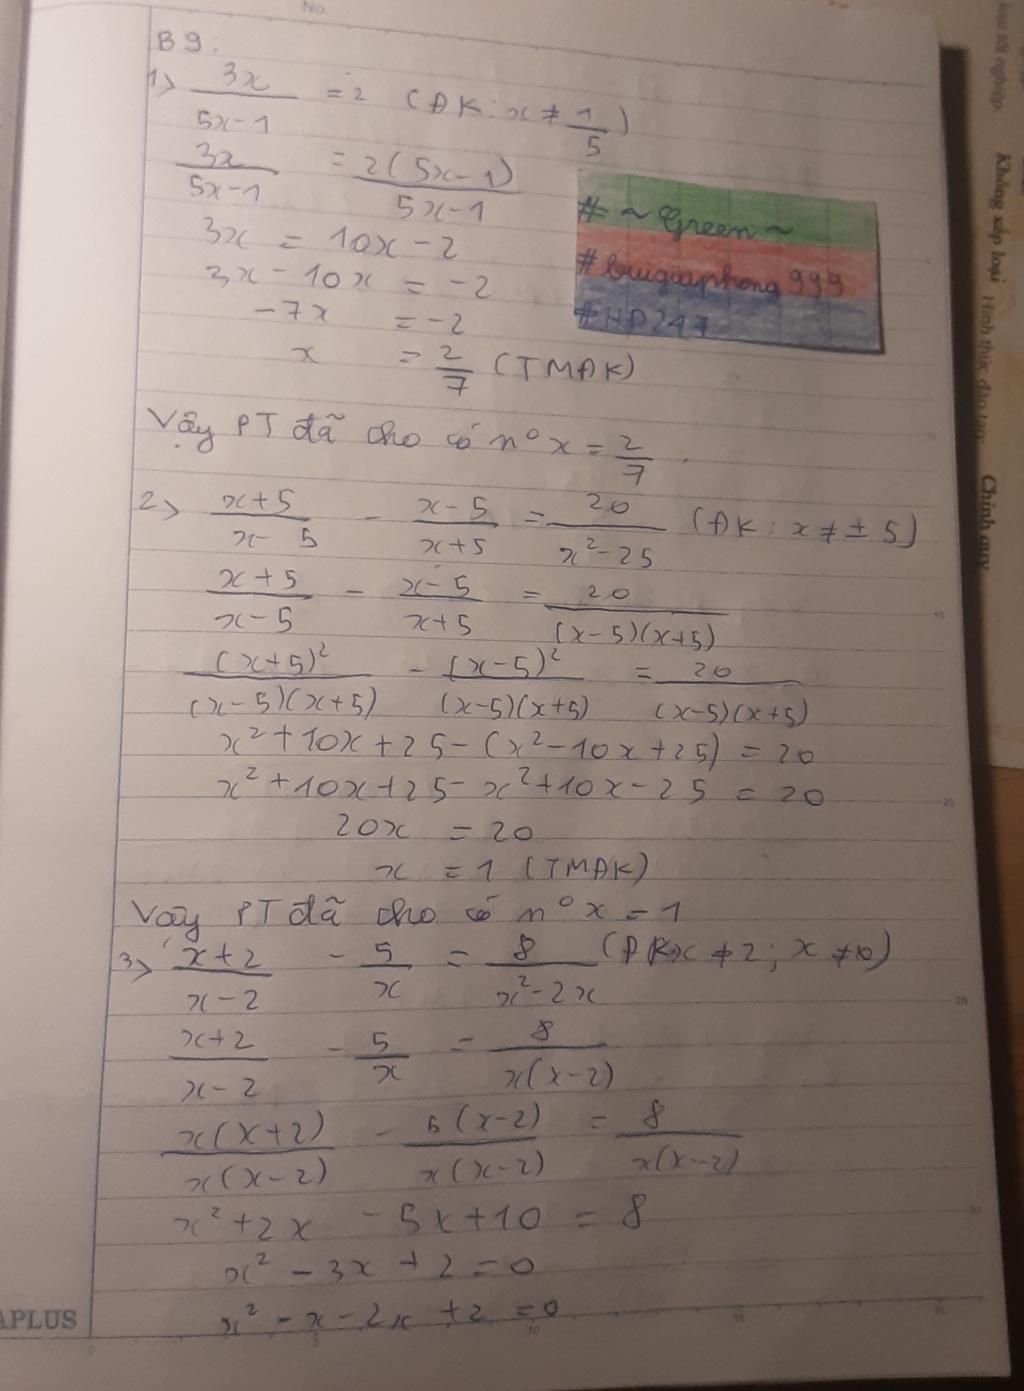 No
B9:
1> 3x/(5x-1) = 2 (ĐK: x ≠ 1/5)
3x/(5x-1) = 2(5x-1)/(5x-1)
3x = 10x - 2
3x - 10x = -2
-7x = -2
x = 2/7 (TMĐK)
Vậy PT đã cho có n° x = 2/7.
# ~Green~
#buugiaphong999
#HD247
2> (x+5)/(x-5) - (x-5)/(x+5) = 20/(x²-25) (ĐK: x ≠ ± 5)
(x+5)/(x-5) - (x-5)/(x+5) = 20/((x-5)(x+5))
(x+5)²/((x-5)(x+5)) - (x-5)²/((x-5)(x+5)) = 20/((x-5)(x+5))
x² + 10x + 25 - (x² - 10x + 25) = 20
x² + 10x + 25 - x² + 10x - 25 = 20
20x = 20
x = 1 (TMĐK)
Vậy PT đã cho có n° x = 1
3> (x+2)/(x-2) - 5/x = 8/(x²-2x) (ĐK: x ≠ 2; x ≠ 0)
(x+2)/(x-2) - 5/x = 8/(x(x-2))
x(x+2)/(x(x-2)) - 5(x-2)/(x(x-2)) = 8/(x(x-2))
x² + 2x - 5x + 10 = 8
x² - 3x + 2 = 0
x² - x - 2x + 2 = 0
APLUS
loại tốt nghiệp:
Không xếp loại
Hình thức đào tạo:
Chính quy